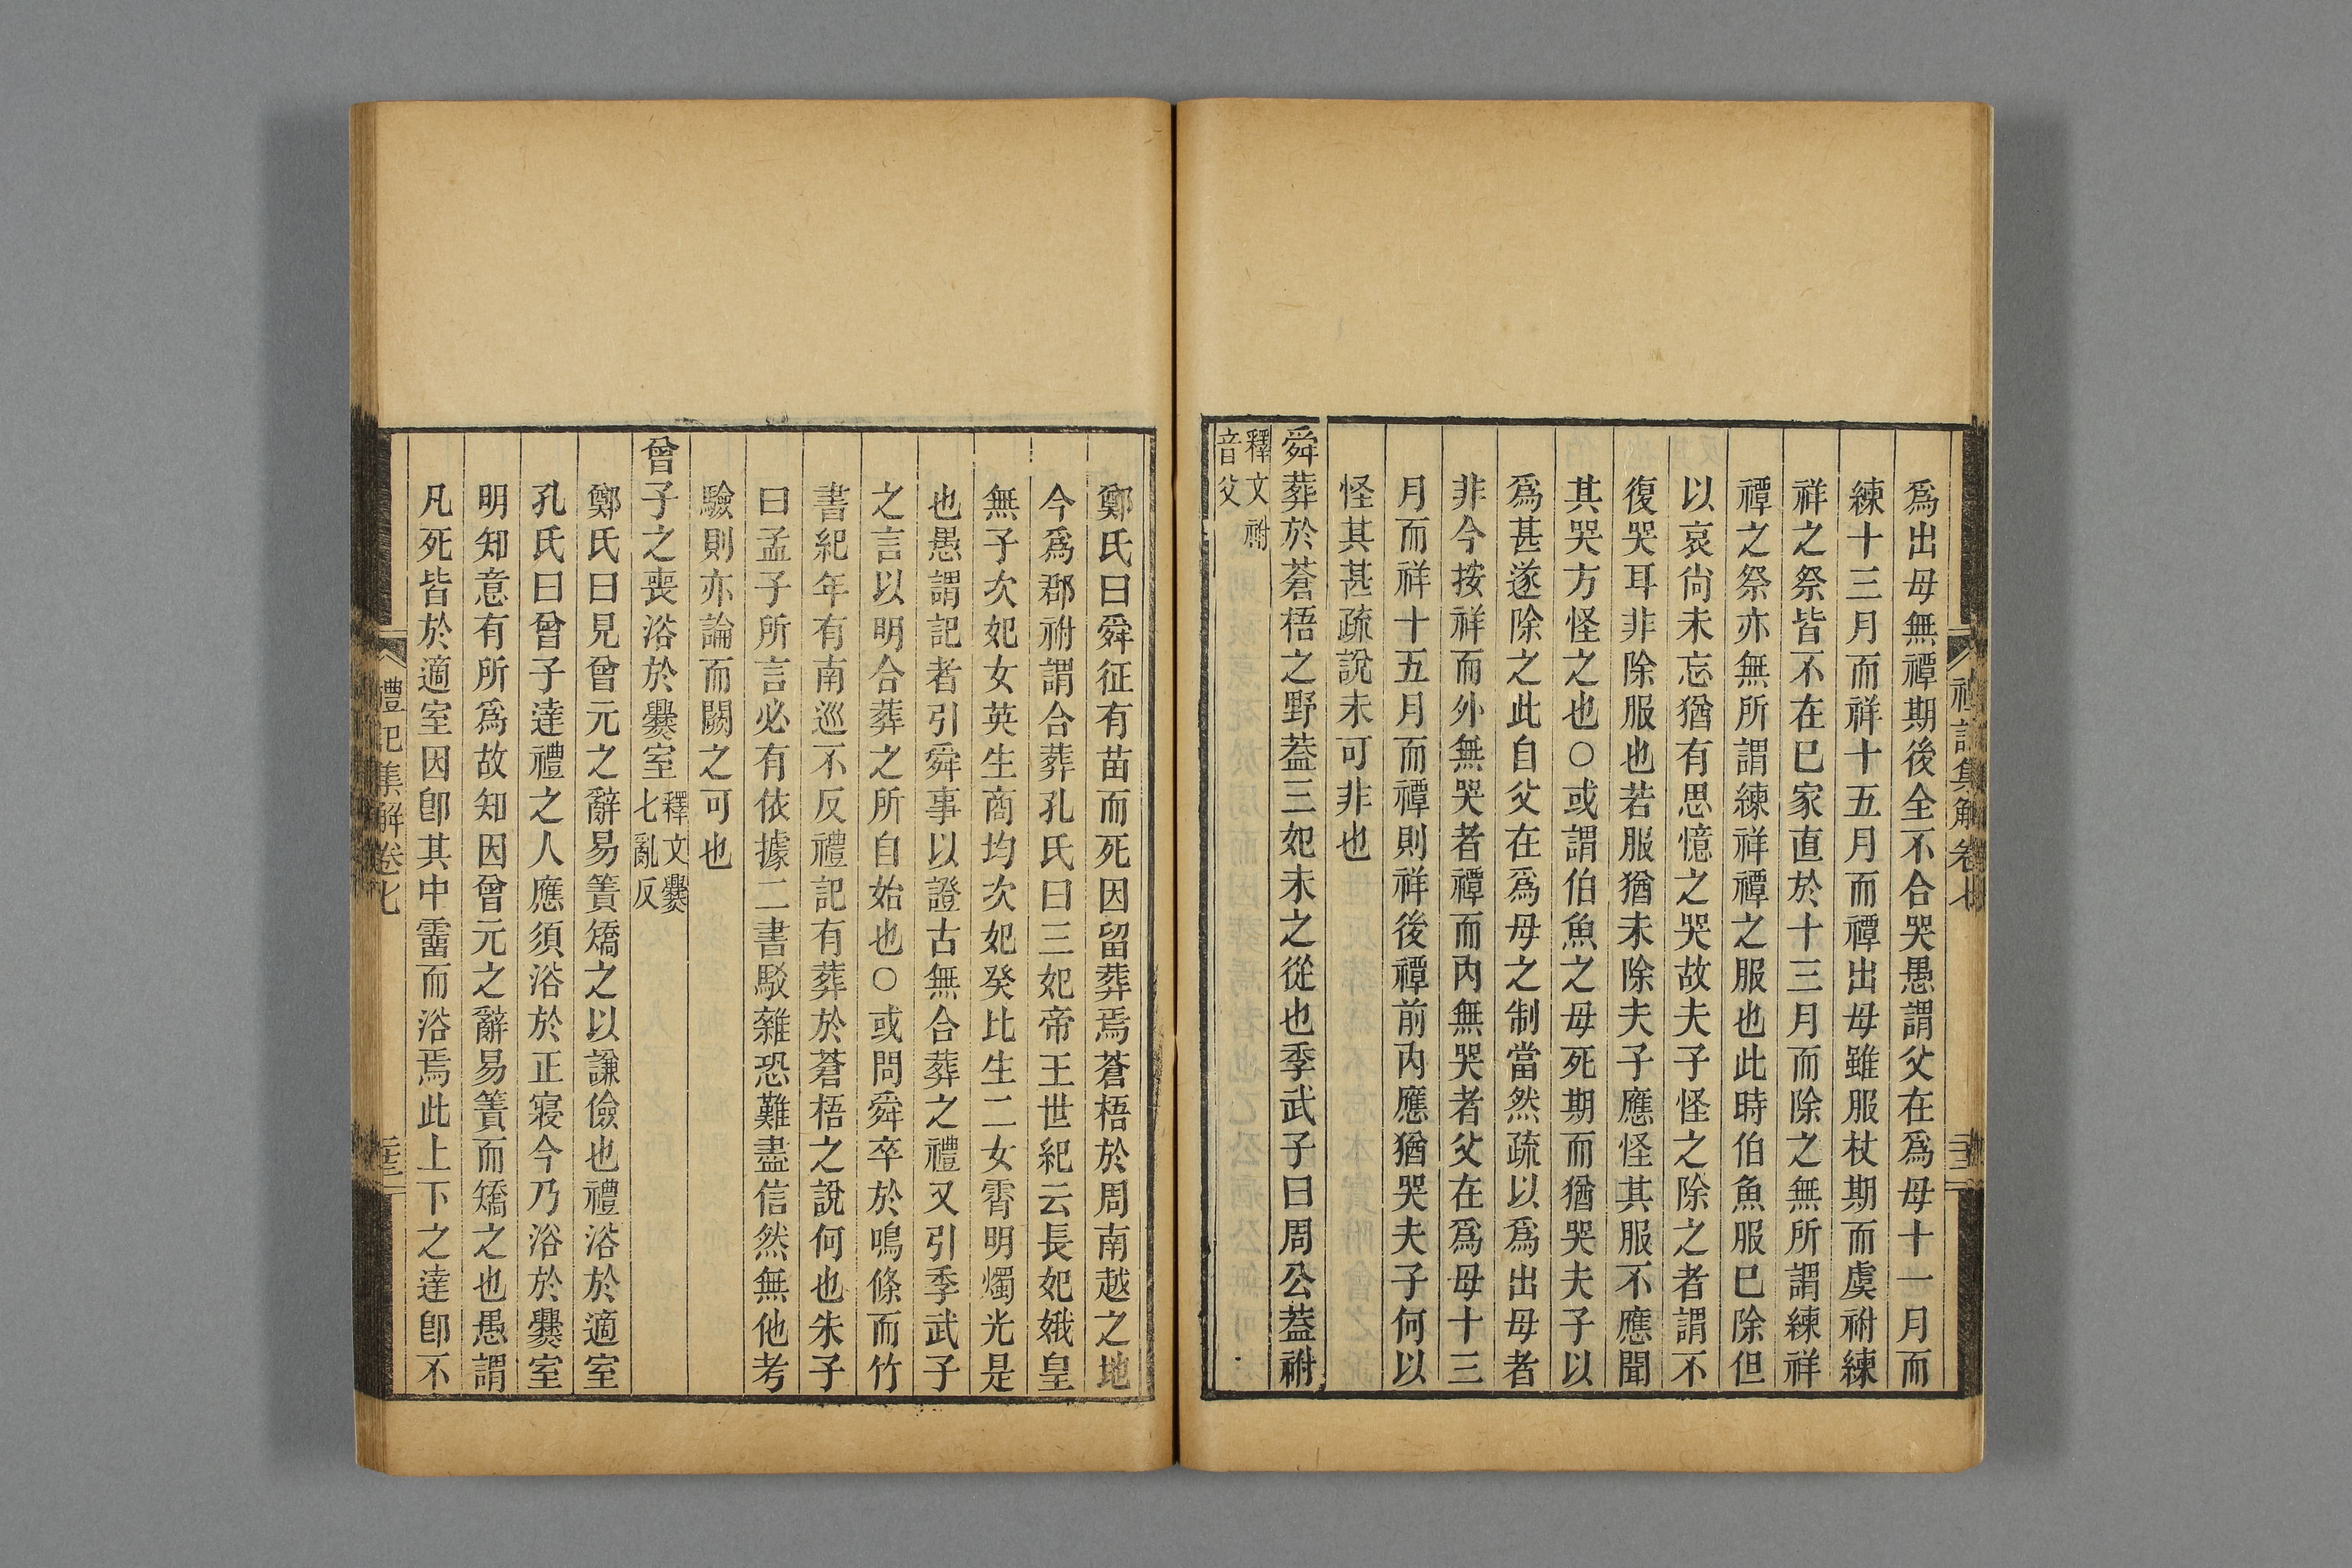 禮記集解卷七
為出母無禫期後全不合哭愚謂父在為母十一月而
練十三月而祥十五月而禫出母雖服杖期而虞祔練
祥之祭皆不在己家直於十三月而除之無所謂練祥
禫之祭亦無所謂練祥禫之服也此時伯魚服已除但
以哀尙未忘猶有思憶之哭故夫子怪之除之者謂不
復哭耳非除服也若服猶未除夫子應怪其服不應聞
其哭方怪之也○或謂伯魚之母死期而猶哭夫子以
爲甚遂除之此自父在爲母之制當然疏以爲出母者
非今按祥而外無哭者禫而內無哭者父在爲母十三
月而祥十五月而禫則祥後禫前內應猶哭夫子何以
怪其甚疏說未可非也
舜葬於蒼梧之野葢三妃未之從也季武子曰周公葢祔
釋文祔
音父
鄭氏曰舜征有苗而死因留葬焉蒼梧於周南越之地
今爲郡祔謂合葬孔氏曰三妃帝王世紀云長妃娥皇
無子次妃女英生商均次妃癸比生二女霄明燭光是
也愚謂記者引舜事以證古無合葬之禮又引季武子
之言以明合葬之所自始也○或問舜卒於鳴條而竹
書紀年有南巡不反禮記有葬於蒼梧之說何也朱子
曰孟子所言必有依據二書駁雜恐難盡信然無他考
驗則亦論而闕之可也
曾子之喪浴於爨室
釋文爨
七亂反
鄭氏曰見曾元之辭易簀矯之以謙儉也禮浴於適室
孔氏曰曾子達禮之人應須浴於正寢今乃浴於爨室
明知意有所爲故知因曾元之辭易簀而矯之也愚謂
凡死皆於適室因卽其中霤而浴焉此上下之達卽不
禮記集解卷七